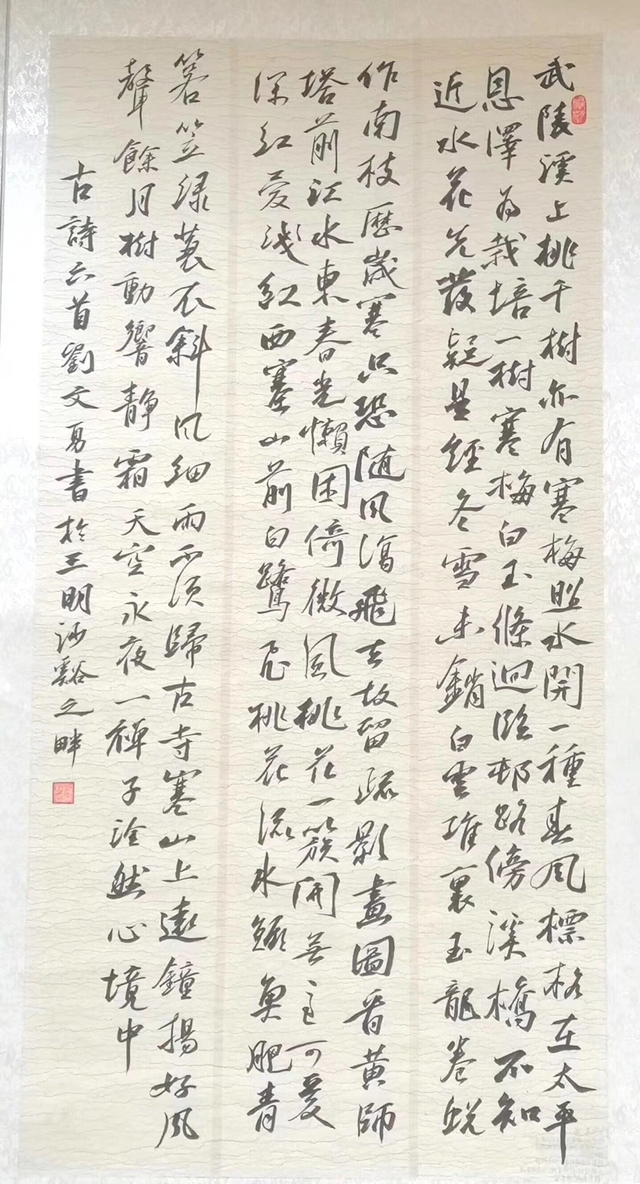 武陵溪上桃千樹亦有寒梅照水開一種春風標格在太平
恩澤為栽培一樹寒梅白玉條迥臨邨路傍溪橋不知
近水花先發疑是經冬雪未銷白雲堆裏玉龍卷蛻
作南枝歷歲寒只恐随風飛去故留疏影畫圖看黃師
塔前江水東春光懶困倚微風桃花一簇開無主可愛
深紅愛淺紅西塞山前白鷺飛桃花流水鱖魚肥青
箬笠绿蓑衣斜風细雨不須歸古寺寒山上遠鐘揚好風
聲餘月樹動響靜霜天空永夜一禪子泠然心境中
古詩六首劉文勇書於三明沙谿之畔